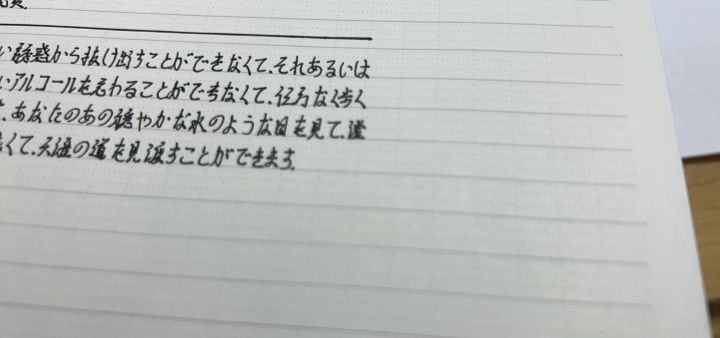 い誘惑から抜け出すことができなくて、それあるいは
いアルコールを忘わることができなくて、仕方なく歩く
、あなたのあの穏やかな水のような目を見て、澄
くて、天涯の道を見渡すことができます。